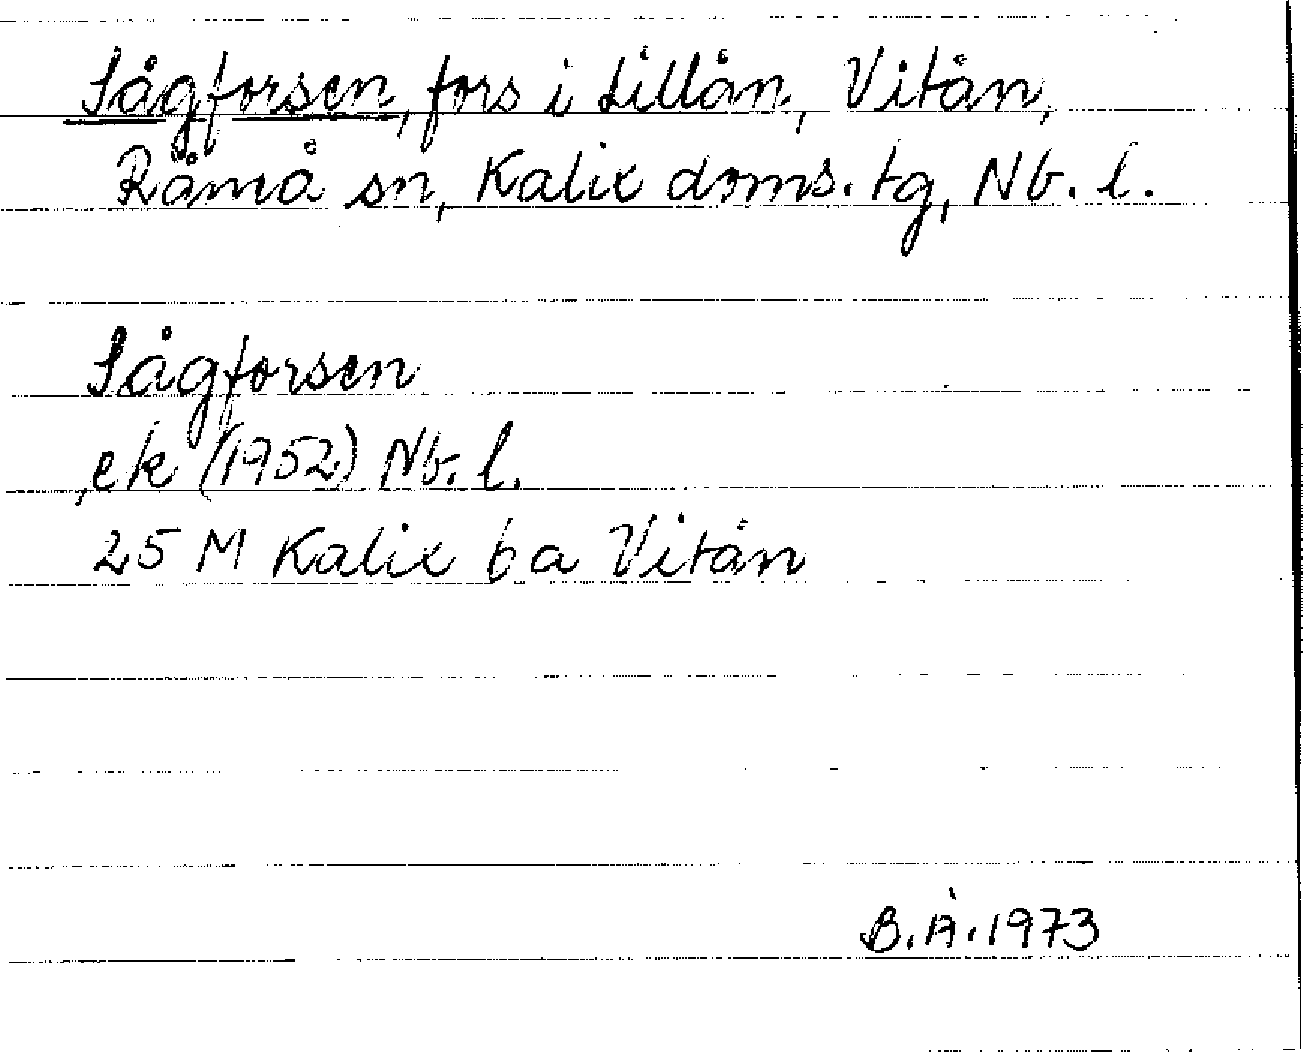 Sågforsen, fors i Lillån, Vitån,
Råneå sn, Kalix doms. tg, Nb. l.
Sågforsen
ek (1952) Nb. l.
25 M Kalix 6 a Vitån
B.Å.1973